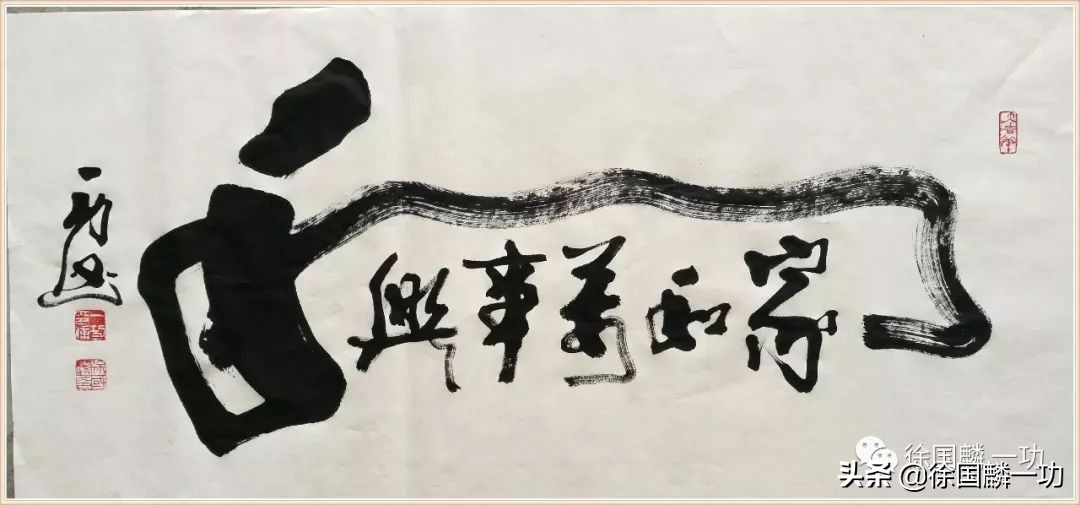 家和萬事興
一功
徐国麟一功
头条 @徐国麟一功